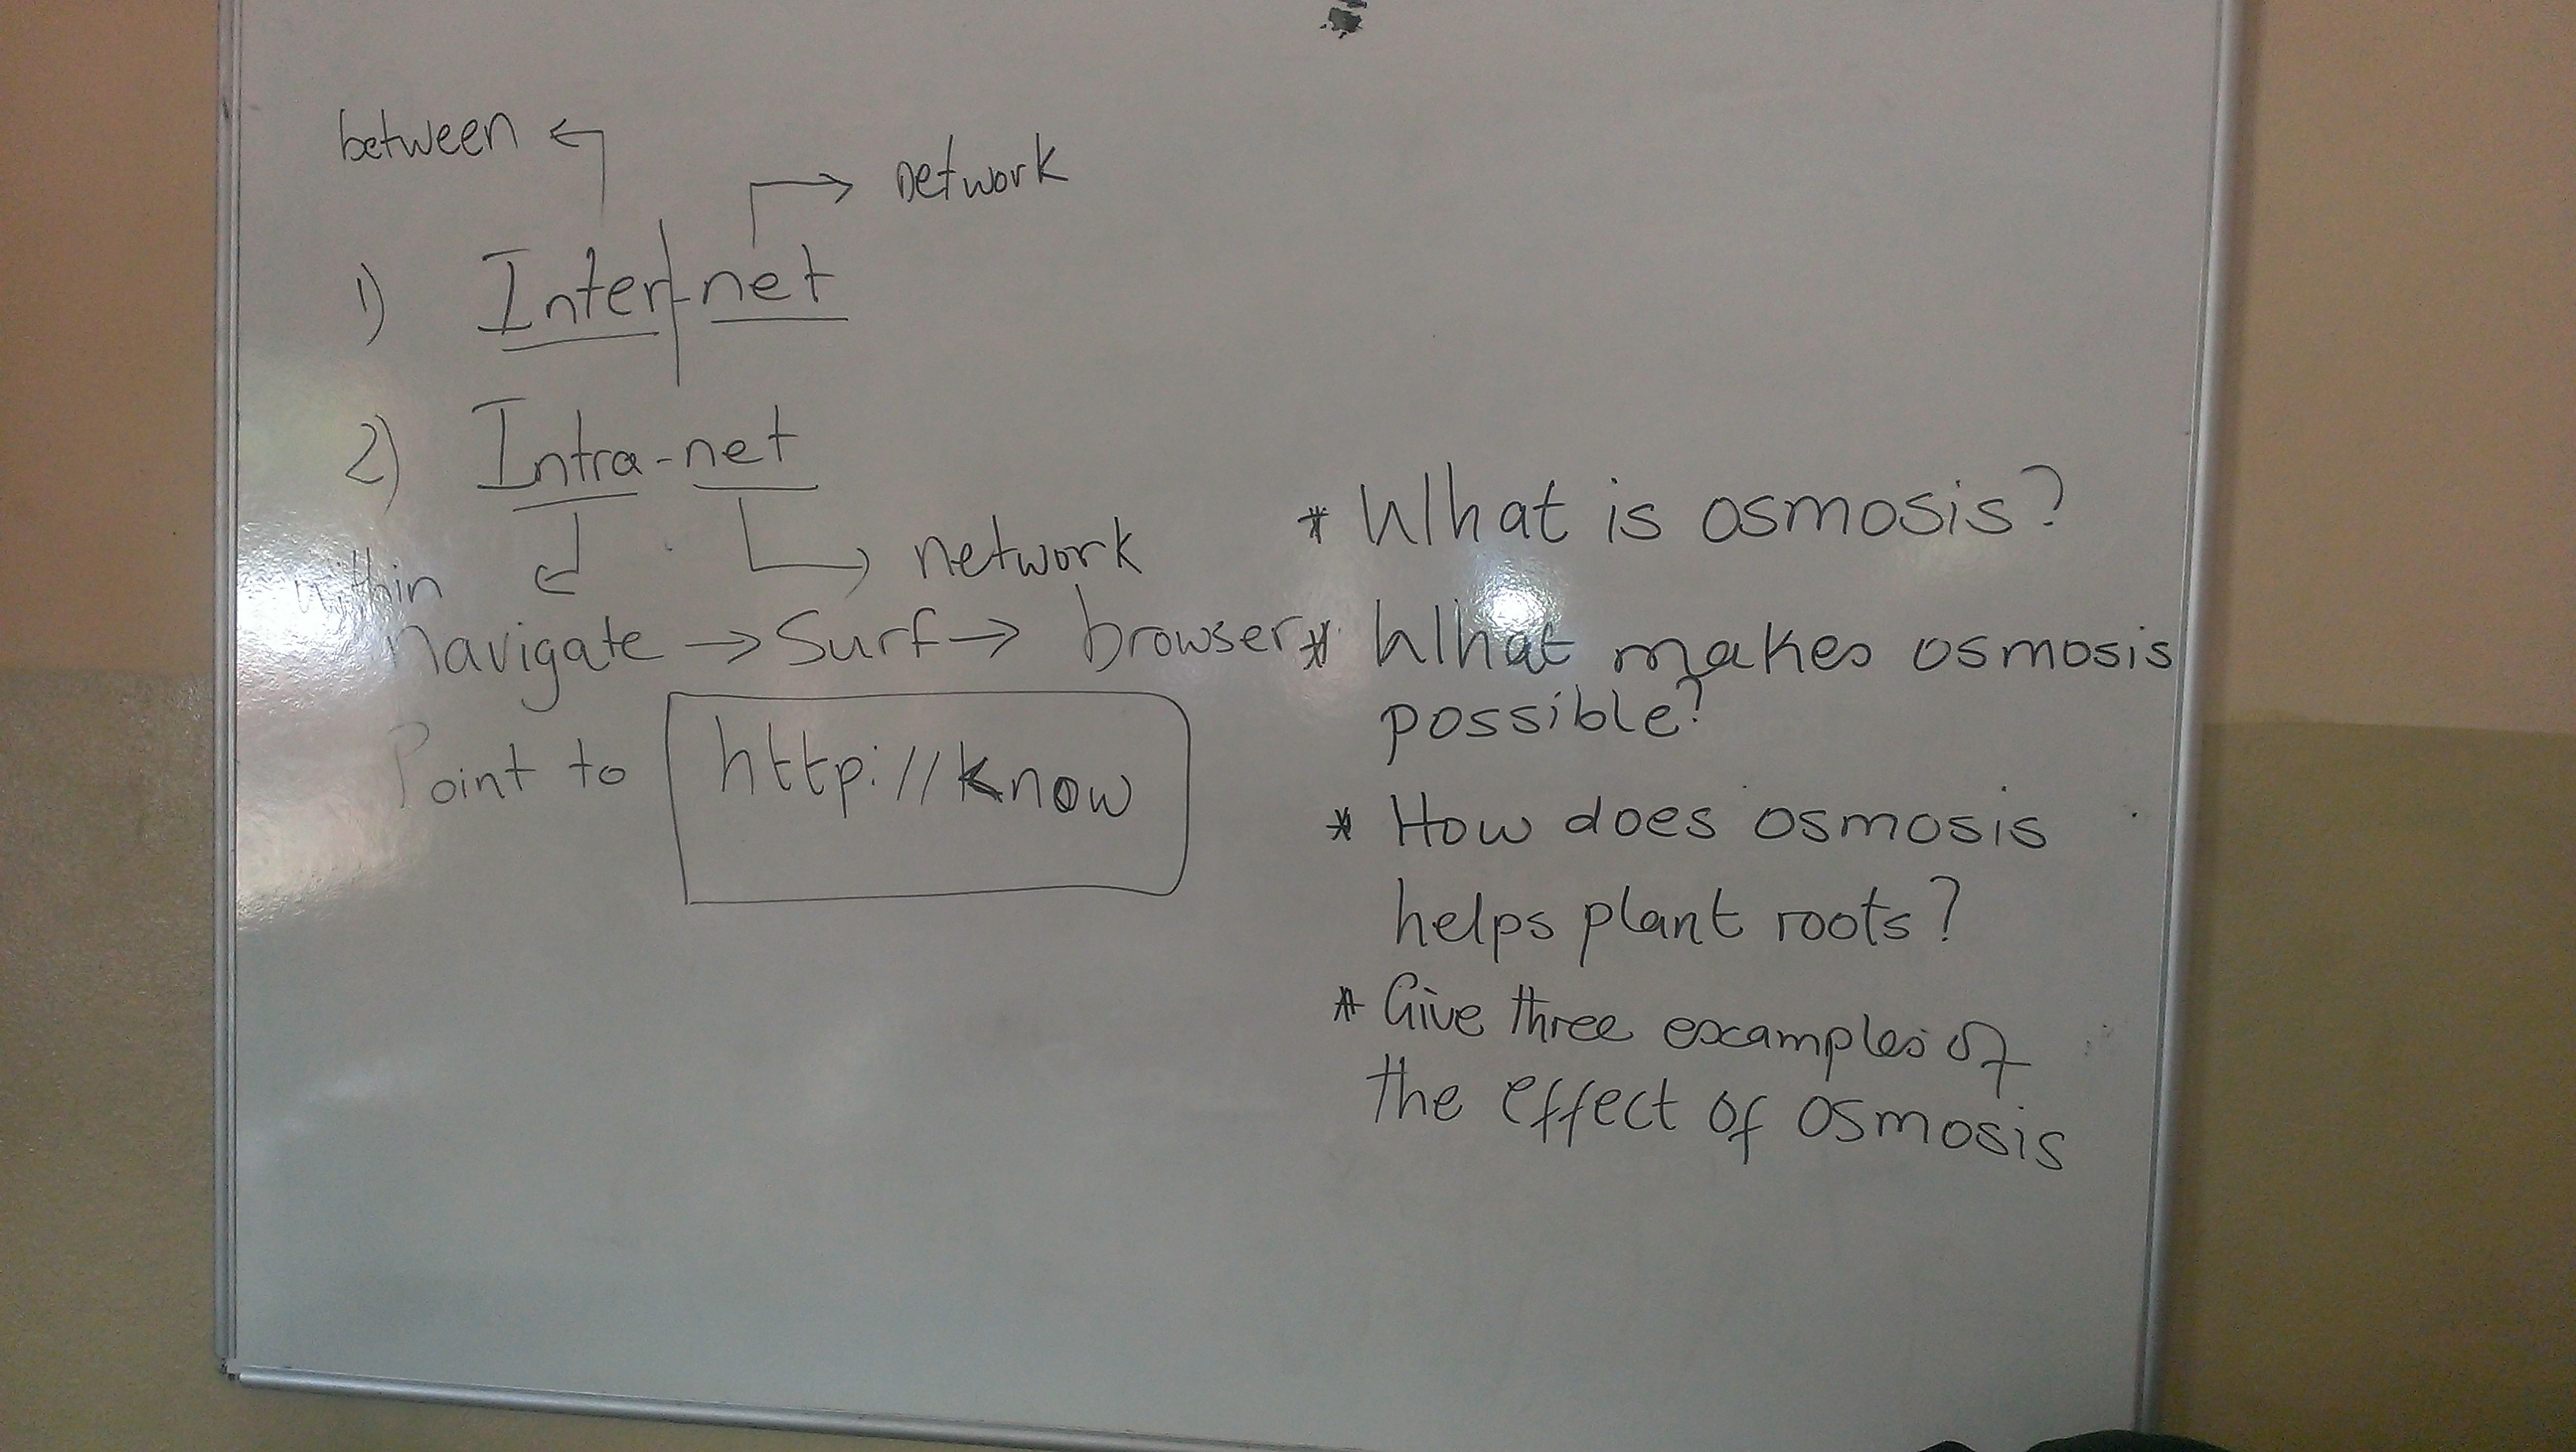 between
network
1) Inter-net
2) Intra-net
within
network
Navigate → Surf → browser
Point to http://know
* What is osmosis?
* What makes osmosis
possible?
* How does osmosis
helps plant roots?
* Give three examples of
the effect of osmosis